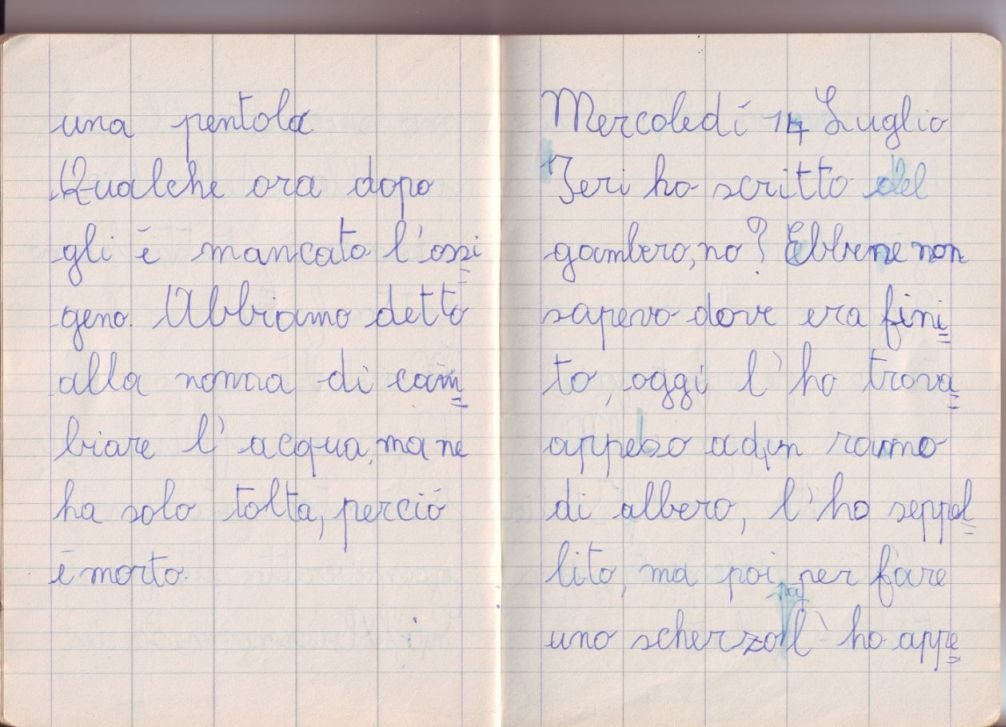 una pentola
Qualche ora dopo
gli è mancato l'ossi
geno. Abbiamo detto
alla nonna di cam
biare l'acqua, ma ne
ha solo tolta, perciò
è morto.
Mercoledí 14 Luglio
Ieri ho scritto del
gambero, no? Ebbene non
sapevo dove era fini
to, oggi l'ho trova
appeso ad un ramo
di albero, l'ho seppel
lito, ma poi per fare
uno scherzo l'ho appe